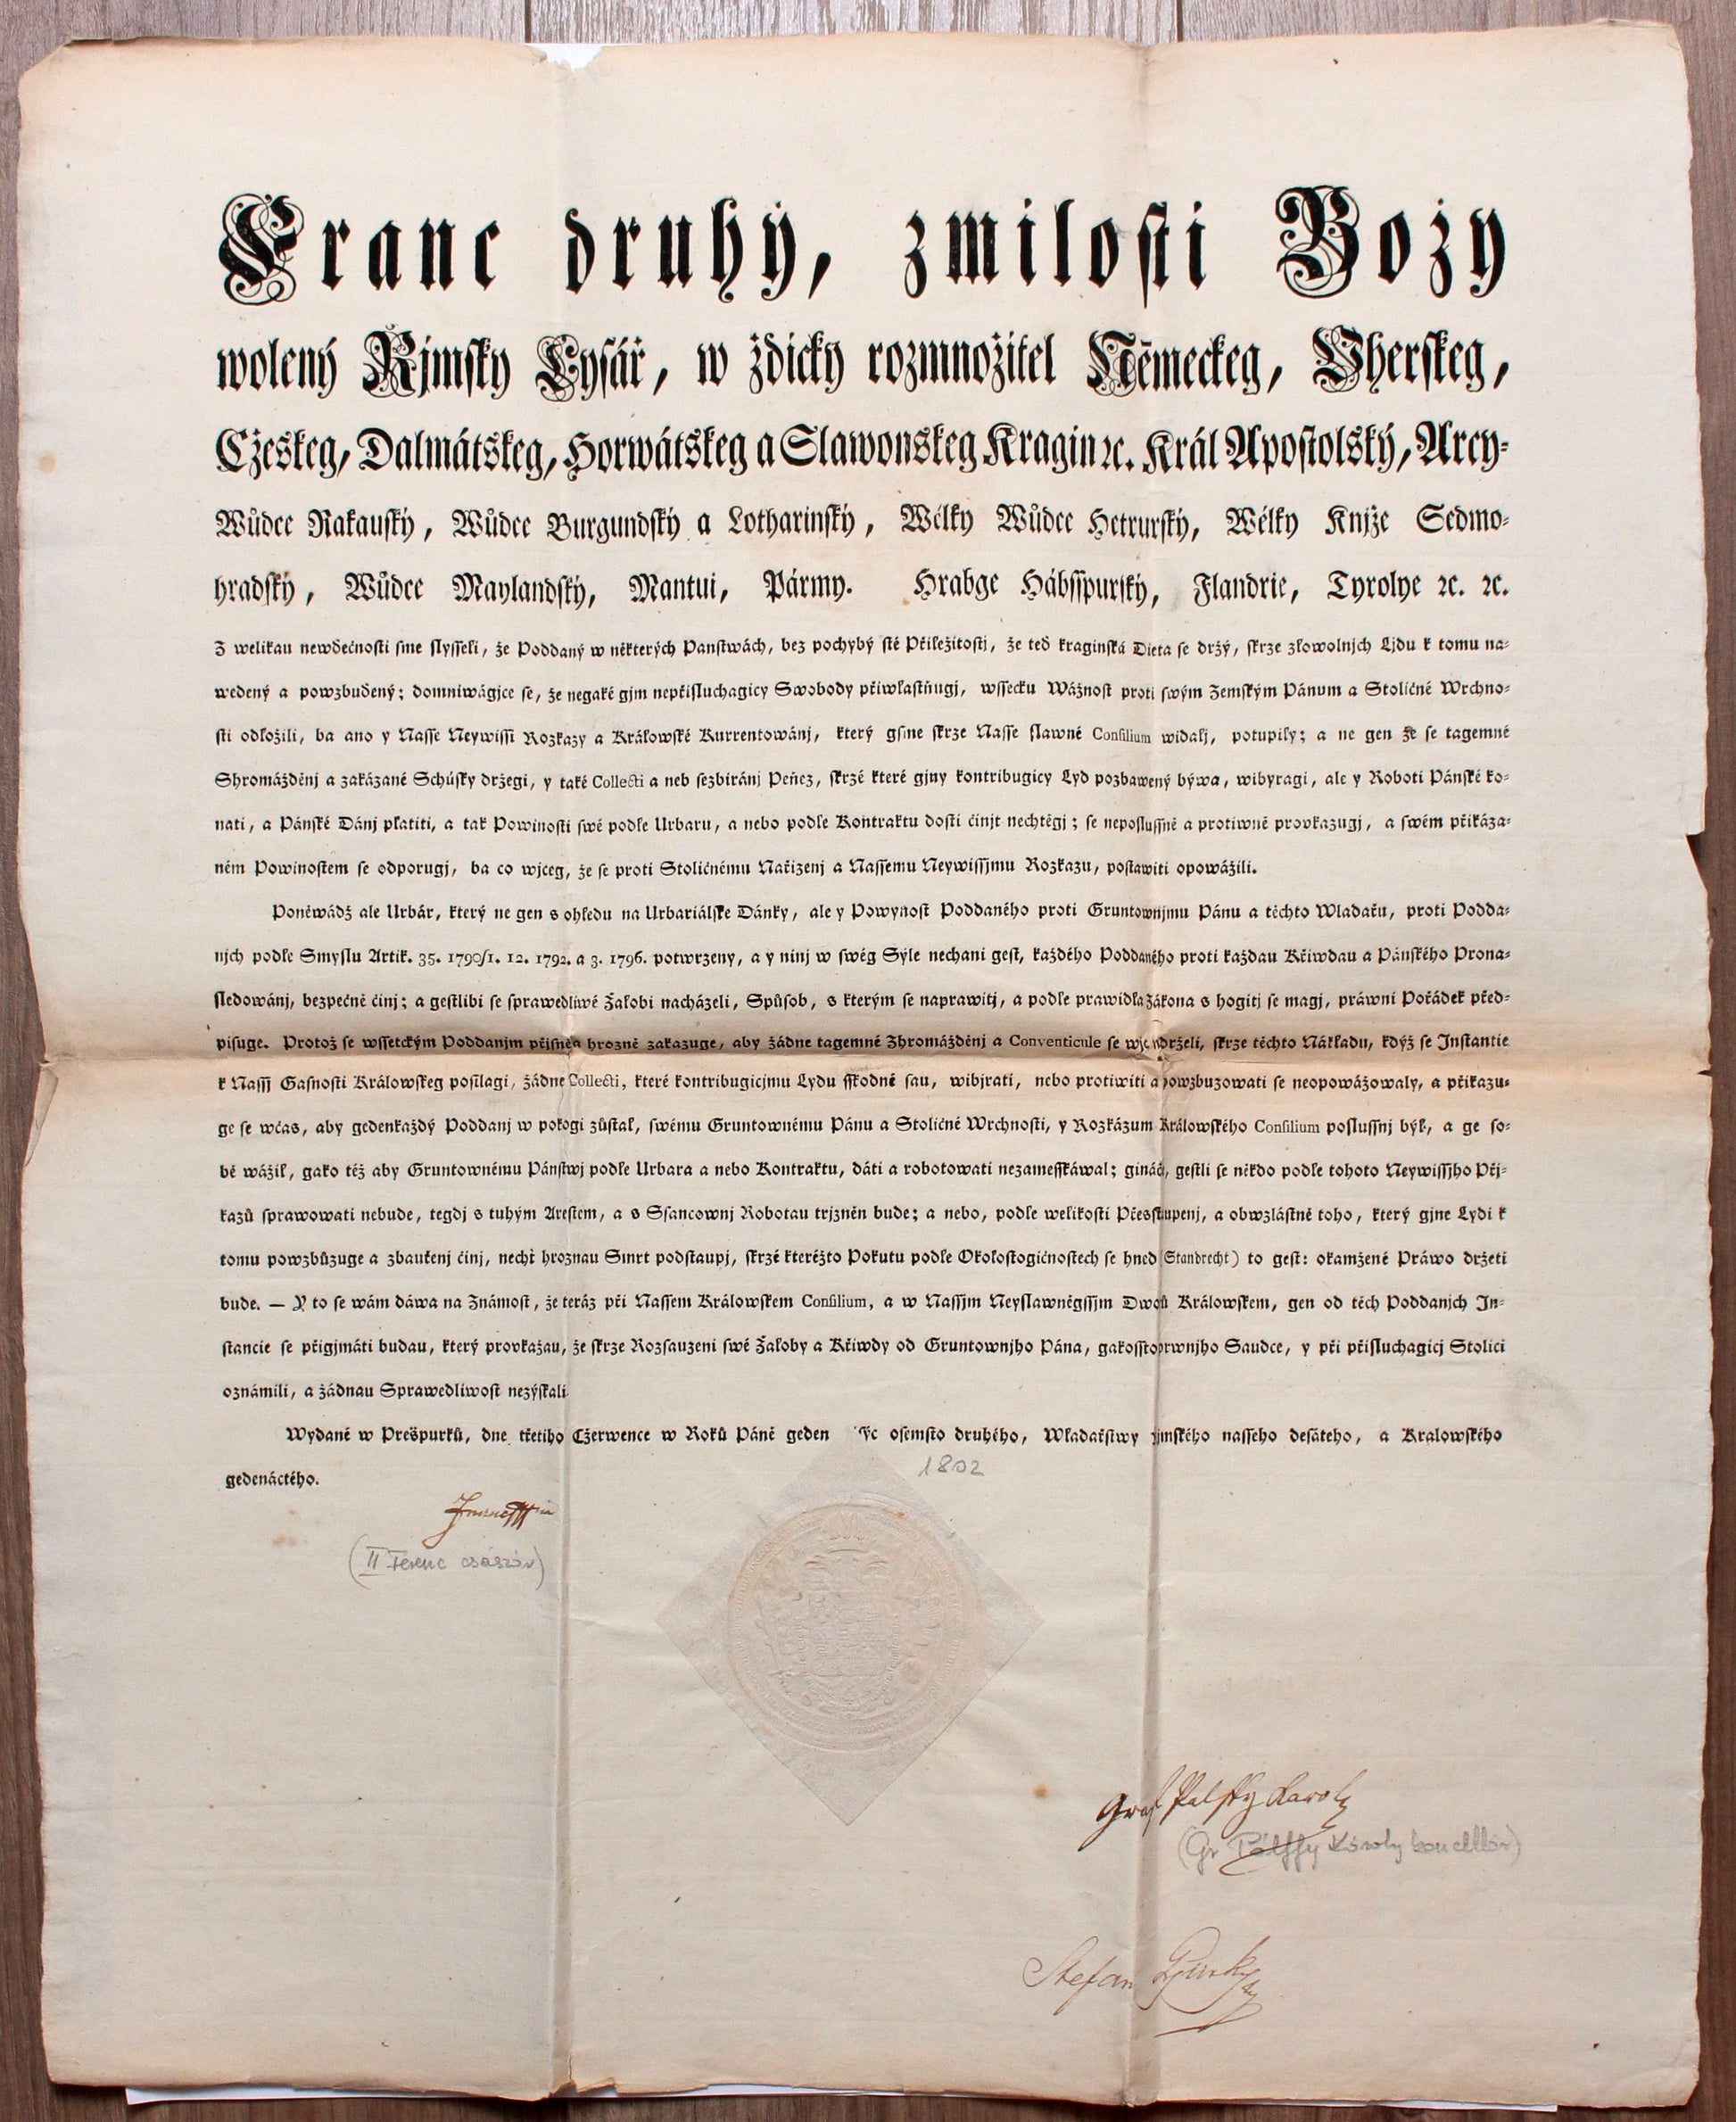 Franc druhý, zmilosti Božy
wolený Rjmsky Cysář, w ždicky rozmnožitel Německeg, Uherskeg,
Cžeskeg, Dalmátskeg, Horwátskeg a Slawonskeg Kragin ꝛc. Král Apostolský, Arcy-
Wůdce Rakauský, Wůdce Burgundský a Lotharinský, Wélky Wůdce Hetrurský, Wélky Knjže Sedmo-
hradský, Wůdce Maylandský, Mantui, Pármy. Hrabge Hábsspurský, Flandrie, Tyrolye ꝛc. ꝛc.
Z welikau newdećnosti sme slysseli, že Poddaný w některých Panstwách, bez pochybý sté Přiležitostj, že teď kraginská Dieta se držý, skrze złowolnjch Ljdu k tomu na-
wedený a powzbudený; domniwágjce se, že negaké gjm nepřisluchagicy Swobody přiwłastňugj, wssecku Wážnost proti swým Zemským Pánum a Stolićné Wrchno-
sti odłožili, ba ano y Nasse Neywissi Rozkazy a Králowské Kurrentowánj, který gsme skrze Nasse slawné Consilium widalj, potupily; a ne gen že se tagemné
Shromážděnj a zakázané Schúsky držegi, y také Collecti a neb sezbiránj Peňez, skrzé které gjny kontribugicy Lyd pozbawený býwa, wibyragi, ale y Roboti Pánské ko-
nati, a Pánské Dánj płatiti, a tak Powinosti swé podłe Urbaru, a nebo podłe Kontraktu dosti ćinjt nechtěgj; se neposlussně a protiwně prowkazugj, a swém přikáza-
ném Powinostem se odporugj, ba co wjceg, že se proti Stolićnému Nařizenj a Nassemu Neywissjmu Rozkazu, postawiti opowážili.
Poněwádž ale Urbár, který ne gen s ohledu na Urbariálske Dánky, ale y Powynost Poddaného proti Gruntownjmu Pánu a těchto Wladařu, proti Podda-
njch podłe Smyslu Artik. 35. 1790/1. 12. 1792. a 3. 1796. potwrzeny, a y ninj w swég Sýle nechani gest, každého Poddaného proti každau Křiwdau a Pánského Prona-
sledowánj, bezpečně ćinj; a gestlibi se sprawedliwé Žałobi nacházeli, Spůsob, s kterým se naprawitj, a podłe prawidła zákona s hogitj se magj, práwni Pořádek před-
pisuge. Protož se wssetckým Poddanjm přjsně a hrozně zakazuge, aby žádne tagemné Zhromážděnj a Conventicule se drželi, skrze těchto Nákładu, kdýž se Instantie
k Nassj Gasnosti Králowskeg posílagi, žádne Collecti, které kontribugicjmu Lydu sskodné sau, wibjrati, nebo protiwiti a powzbuzowati se neopowážowaly, a přikazu-
ge se wćas, aby gedenkaždý Poddanj w pokogi zůstał, swému Gruntownému Pánu a Stolićné Wrchnosti, y Rozkázum Králowského Consilium poslussnj býł, a ge so-
bě wážił, gako též aby Gruntownému Pánstwj podłe Urbara a nebo Kontraktu, dáti a robotowati nezamesskáwal; gináč, gestli se někdo podłe tohoto Neywissjho Přj-
kazů sprawowati nebude, tegdj s tuhým Arestem, a s Ssancownj Robotau trjzněn bude; a nebo, podłe welikosti Přesstupenj, a obwzlástně toho, který gjne Lydi k
tomu powzbůzuge a zbauřenj ćinj, nechť hroznau Smrt podstaupj, skrzé kteréžto Pokutu podłe Okołostogićnostech se hned (Standrecht) to gest: okamžené Práwo držeti
bude. — Y to se wám dáwa na Známost, že teráz při Nassem Králowskem Consilium, a w Nassjm Neyslawněgssjm Dwoů Králowskem, gen od těch Poddanjch In-
stancie se přigjmáti budau, který prowkažau, že skrze Rozsauzeni swé Žałoby a Křiwdy od Gruntownjho Pána, gakossto prwnjho Saudce, y při přisluchagicj Stolici
oznámili, a žádnau Sprawedliwost nezýskali
Wydané w Prešpurků, dne třetiho Cžerwence w Roků Páně geden osemsto druhého, Władařstwy nasseho desáteho, a Kralowského
gedenáctého.
1802
(II Ferenc császár)
Graf Palffy Karoly
(Gr Pálffy Károly kancellár)
Stefan